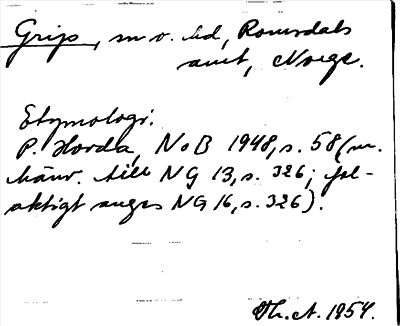 Grip, sn o. hd, Romsdals
amt, Norge.
Etymologi:
P. Hovda, NoB 1948, s. 58 (m.
hänv. till NG 13, s. 326; fel-
aktigt anges NG 16, s. 326).
Th. A. 1954.